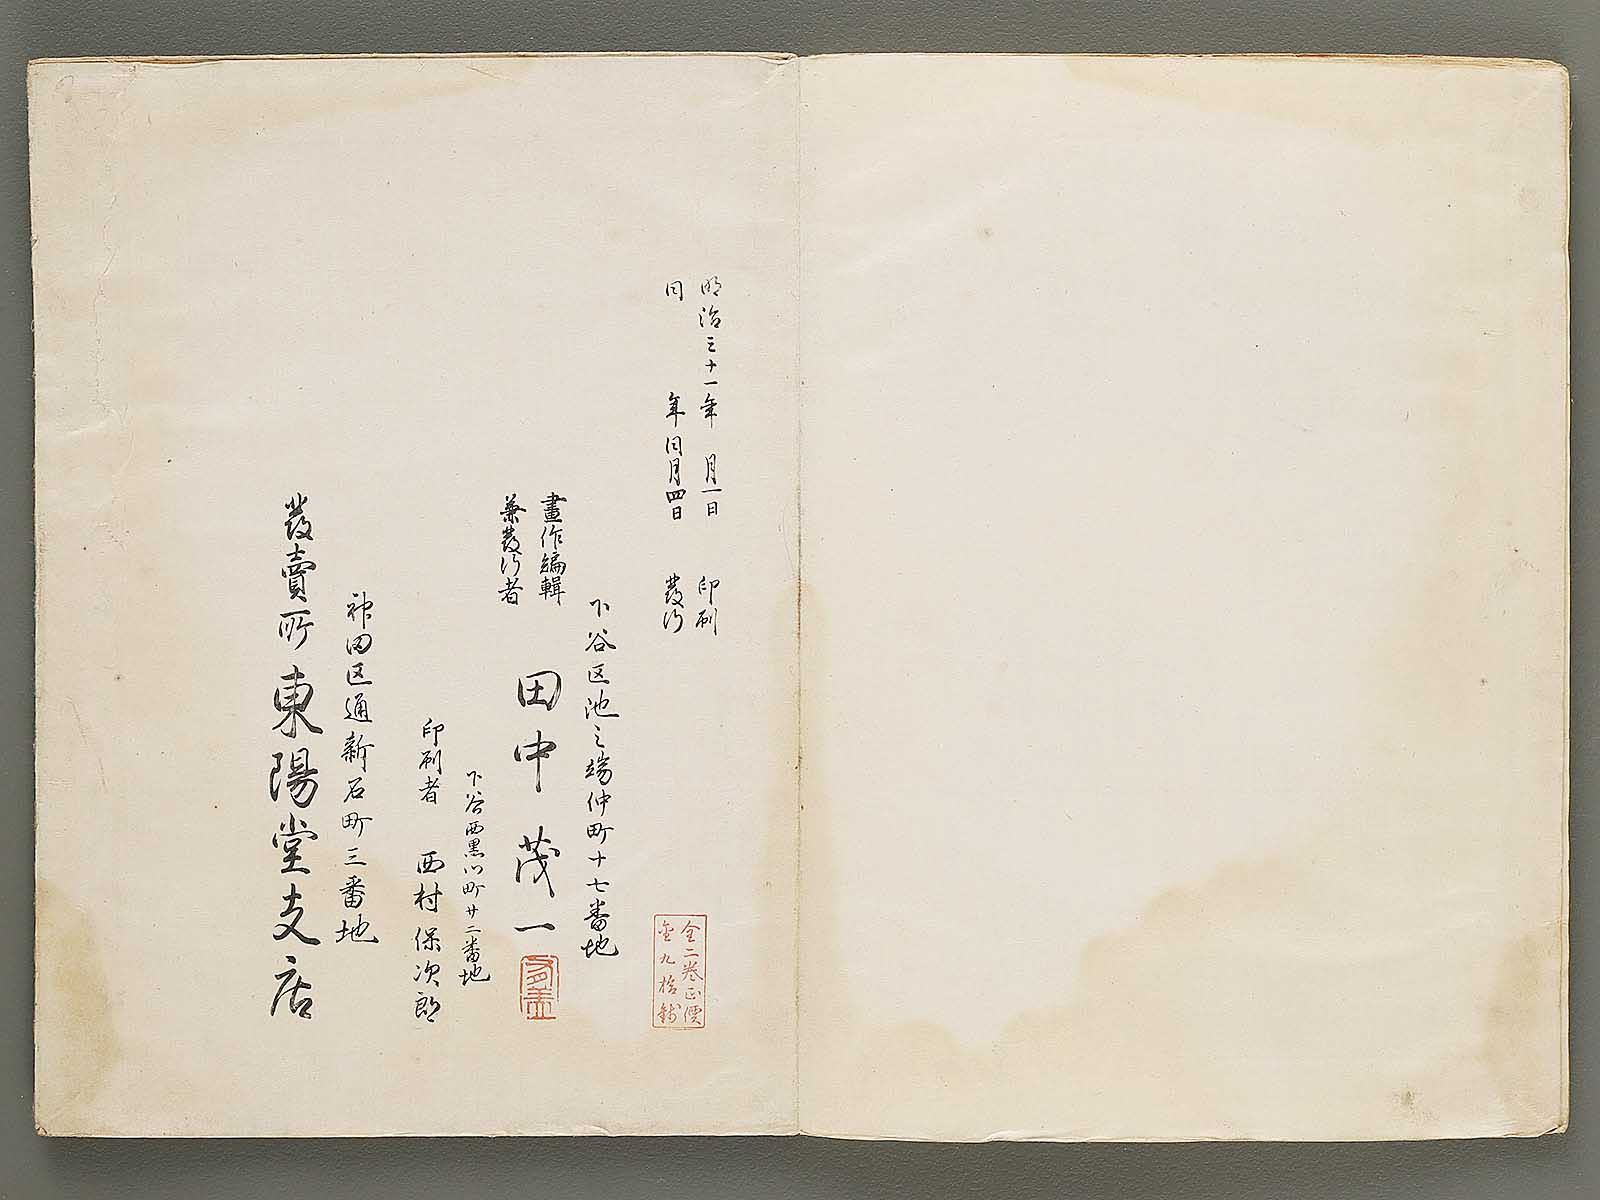 明治三十一年 月一日 印刷
同 年同月四日 發行
全二卷正價
金九拾錢
下谷区池之端仲町十七番地
畫作編輯
兼發行者
田中茂一
下谷西黒門町廿二番地
印刷者 西村保次郎
神田区通新石町三番地
發賣所 東陽堂支店